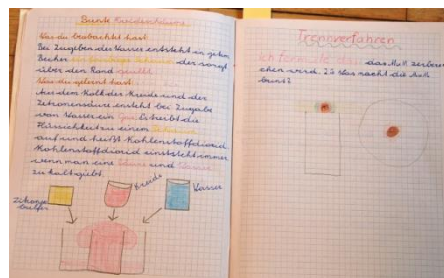 Bunte Kreideschäume
Was du beobachtet hast:
Bei Zugeben des Wasser entsteht in jedem
Becher ein der sorgt
über den Rand quillt.
Was du gelernt hast:
Aus dem Kalk der Kreide und der
Zitronensäure ensteht bei Zugabe
von Wasser ein Gas. Es treibt die
Flüssichkeit zu einem Schaum
auf und heißt Kohlenstoffdioxid
Kohlenstoffdioxid entsteht immer
wenn man eine Säure und
zu kalk giebt.
Kreide
Wasser
Trennverfahren
Ich das das M&M zerbre
chen wird. Was macht die M&M
bunt?